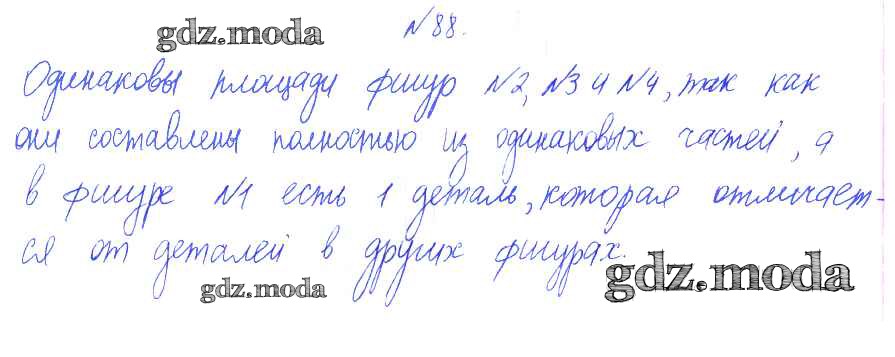 №88.
gdz.moda
Одинаковы площади фигур №2, №3 и №4, так как
они составлены полностью из одинаковых частей, а
в фигуре №1 есть 1 деталь, которая отличает-
ся от деталей в других фигурах.
gdz.moda
gdz.moda